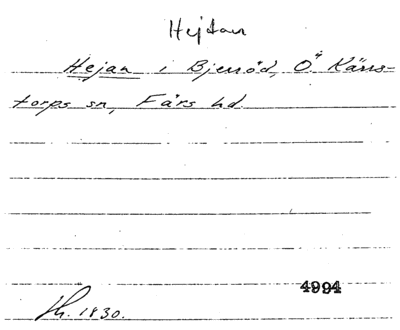 Hejdan
Hejan i Bjerröd, Ö Kärrs-
torps sn, Färs hd.
4994
1830.